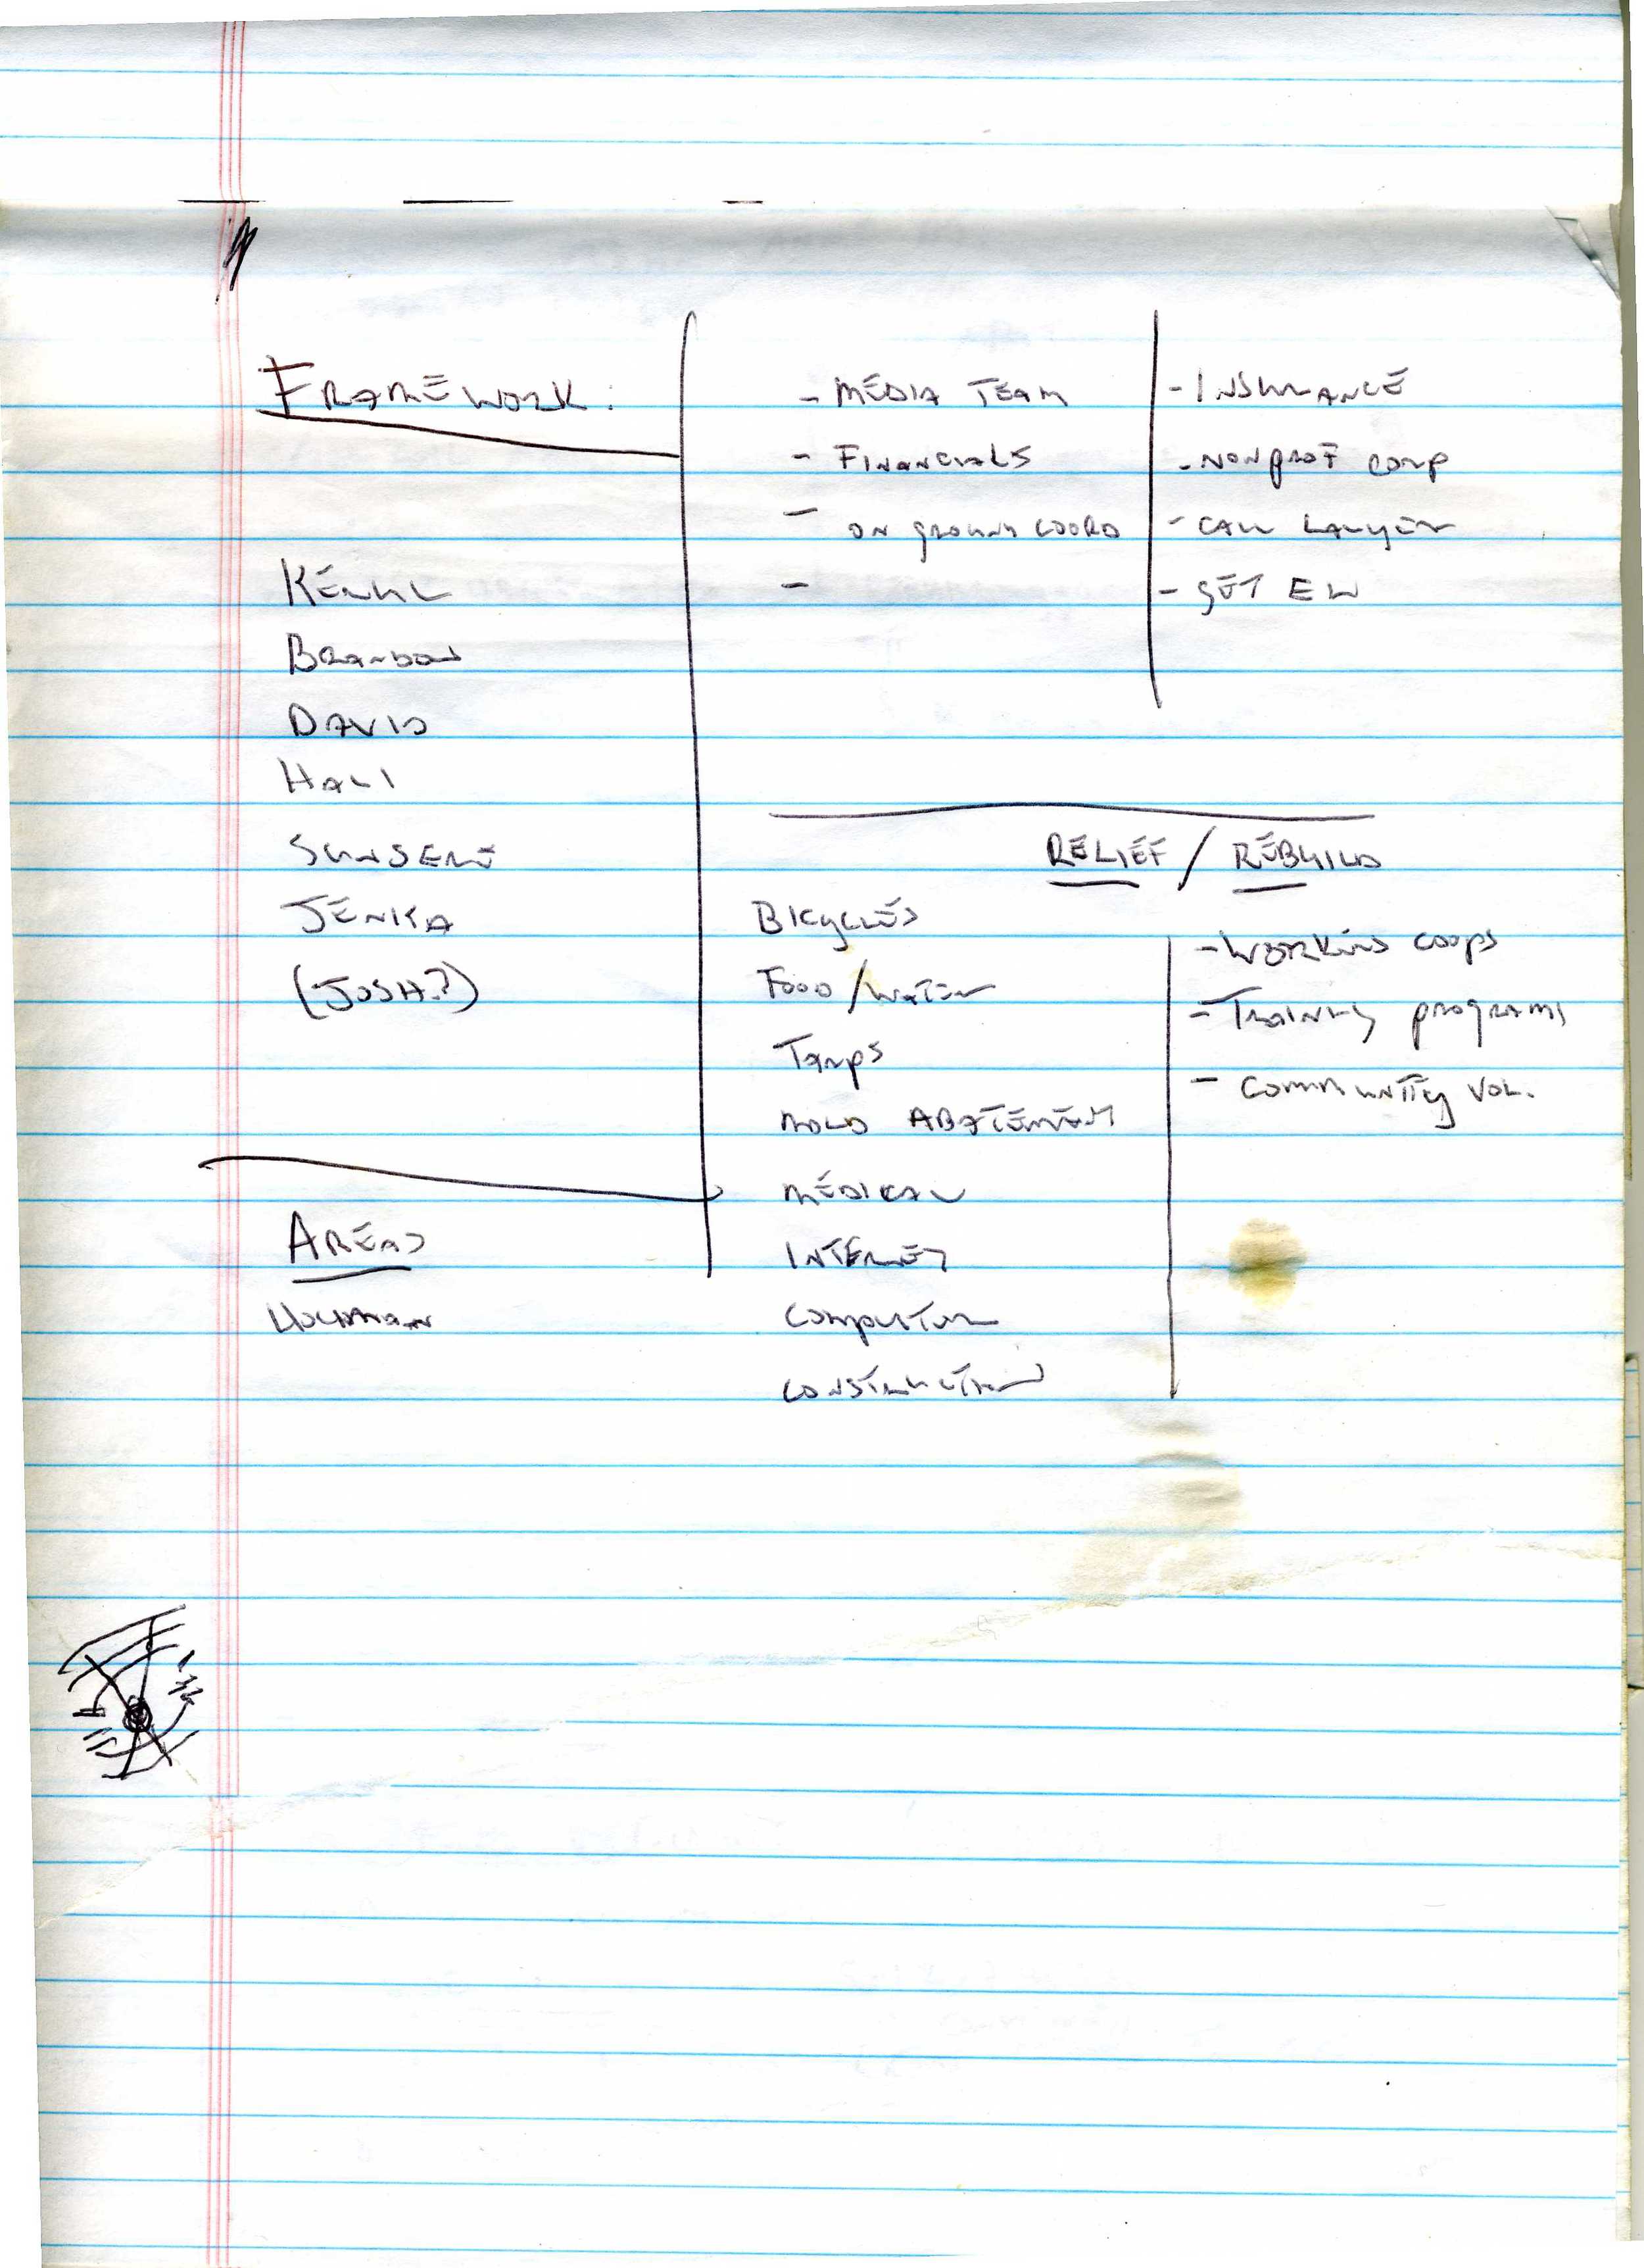 FRAMEWORK:
BRANDON
DAVID
HALI
JENKA
(JOSH?)
AREAS
- MEDIA TEAM
- FINANCIALS
- ON GROUND COORD
-
- INSURANCE
- NONPROF CORP
- CALL LAWYER
- GET
RELIEF / REBUILD
BICYCLES
FOOD/WATER
TARPS
MOLD ABATEMENT
MEDICAL
INTERNET
COMPUTER
CONSTRUCTION
- COOPS
- TRAINING PROGRAMS
- COMMUNITY VOL.